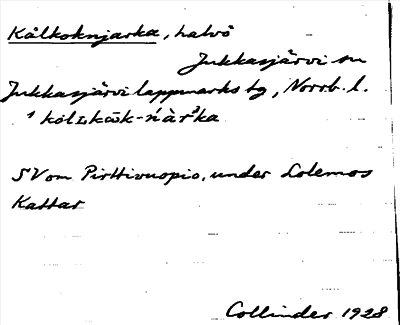 Kålkoknjarka, halvö
Jukkasjärvi sn
Jukkasjärvi lappmarks tg, Norrb. l.
SV om Pirttivuopio, under Lolemos
Kattar
Collinder 1928